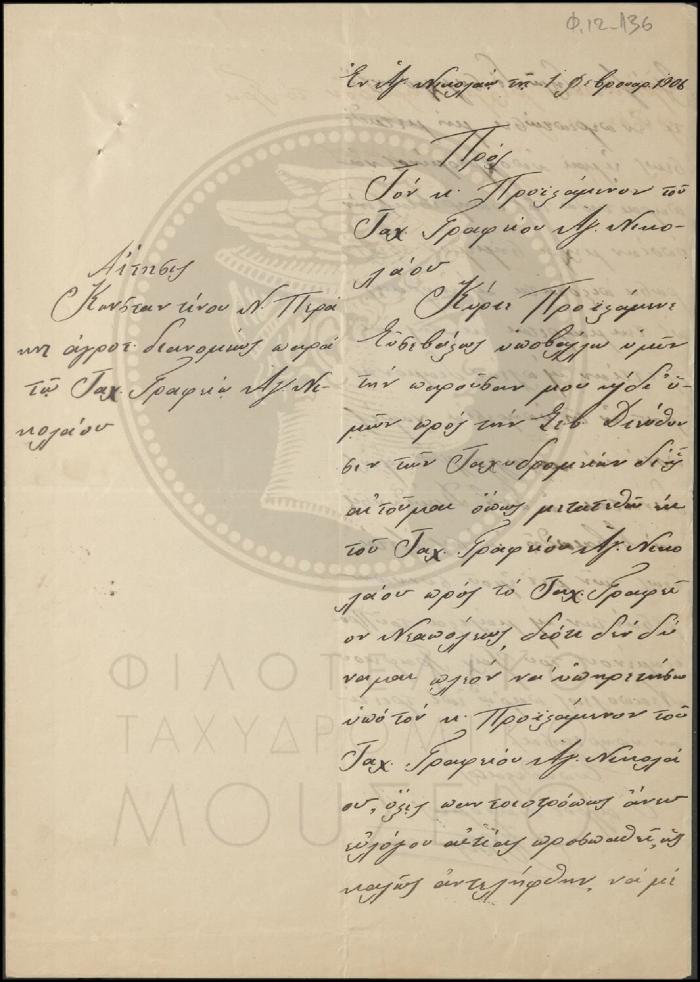 Φ.12-136
Ἐν Ἁγ. Νικολάῳ τῇ 1 Φεβρουαρ. 1906
Πρός
Τόν κ. Προϊστάμενον τοῦ
Ταχ. Γραφείου Ἁγ. Νικο-
λάου
Αἴτησις
Κωνσταντίνου Ν. Περά
κη ἀγροτ. διανομέως παρά
τῷ Ταχ. Γραφείῳ Ἁγ. Νι-
κολάου
Κύριε Προϊστάμενε
Εὐσεβάστως ὑποβάλλω ὑμῖν
τήν παροῦσάν μου δι'
ὑμῶν πρός τήν Σεβ. Διεύθυν
σιν τῶν Ταχυδρομείων δι' ἧς
αἰτοῦμαι ὅπως μετατεθῶ ἐκ
τοῦ Ταχ. Γραφείου Ἁγ. Νικο
λάου πρός τό Ταχ. Γραφεῖ
ον Νεαπόλεως, διότι δέν δύ
ναμαι πλέον νά ὑπηρετήσω
ὑπό τόν κ. Προϊστάμενον τοῦ
Ταχ. Γραφείου Ἁγ. Νικολά
ου, ὅστις παντοιοτρόπως ἄνευ
εὐλόγου αἰτίας προσπαθεῖ, ὡς
καλῶς ἀντελήφθην, νά μέ
ΦΙΛΟΤΕΛΙΚΟ
ΤΑΧΥΔΡΟΜΙΚΟ
ΜΟΥΣΕΙΟ